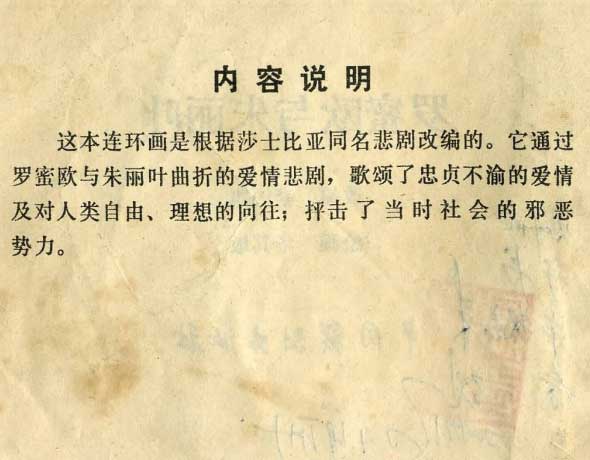 内容说明
这本连环画是根据莎士比亚同名悲剧改编的。它通过
罗蜜欧与朱丽叶曲折的爱情悲剧，歌颂了忠贞不渝的爱情
及对人类自由、理想的向往；抨击了当时社会的邪恶
势力。